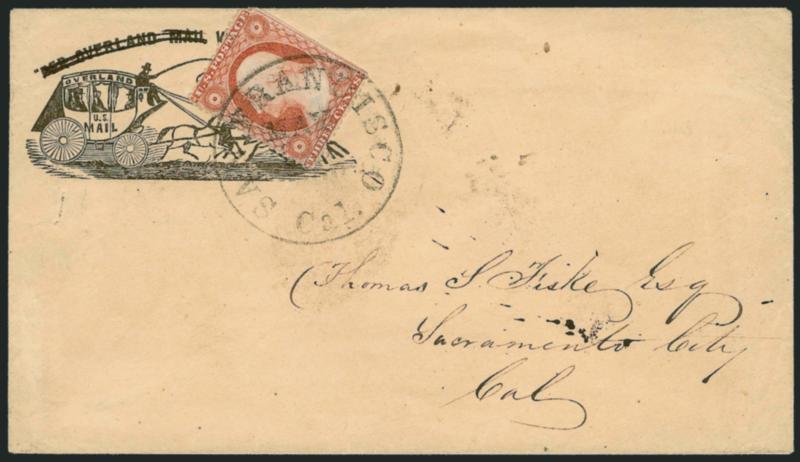 PER OVERLAND MAIL V
OVERLAND
U.S.
MAIL
SAN FRANCISCO
Cal.
Thomas S. Fiske Esq
Sacramento City
Cal